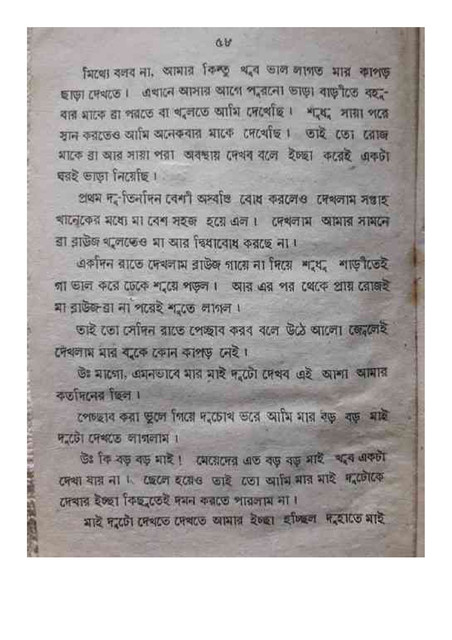 ৫৮
মিথ্যে বলব না, আমার কিন্তু খুব ভাল লাগত মার কাপড়
ছাড়া দেখতে। এখানে আসার আগে পুরনো ভাড়া বাড়ীতে বহু-
বার মাকে ব্রা পরতে বা খুলতে আমি দেখেছি। শুধু সায়া পরে
স্নান করতেও আমি অনেকবার মাকে দেখেছি। তাই তো রোজ
মাকে ব্রা আর সায়া পরা অবস্থায় দেখব বলে ইচ্ছা করেই একটা
ঘরই ভাড়া নিয়েছি।
প্রথম দু-তিনদিন বেশী অস্বস্তি বোধ করলেও দেখলাম সপ্তাহ
খানেকের মধ্যে মা বেশ সহজ হয়ে এল। দেখলাম আমার সামনে
ব্রা ব্লাউজ খুলতেও মা আর দ্বিধাবোধ করছে না।
একদিন রাতে দেখলাম ব্লাউজ গায়ে না দিয়ে শুধু শাড়ীতেই
গা ভাল করে ঢেকে শুয়ে পড়ল। আর এর পর থেকে প্রায় রোজই
মা ব্লাউজ-ব্রা না পরেই শুতে লাগল।
তাই তো সেদিন রাতে পেচ্ছাব করব বলে উঠে আলো জ্বেলেই
দেখলাম মার বুকে কোন কাপড় নেই।
উঃ মাগো, এমনভাবে মার মাই দুটো দেখব এই আশা আমার
কতদিনের ছিল।
পেচ্ছাব করা ভুলে গিয়ে দুচোখ ভরে আমি মার বড় বড় মাই
দুটো দেখতে লাগলাম।
উঃ কি বড় বড় মাই! মেয়েদের এত বড় বড় মাই খুব একটা
দেখা যায় না। ছেলে হয়েও তাই তো আমি মার মাই দুটোকে
দেখার ইচ্ছা কিছুতেই দমন করতে পারলাম না।
মাই দুটো দেখতে দেখতে আমার ইচ্ছা হচ্ছিল দুহাতে মাই